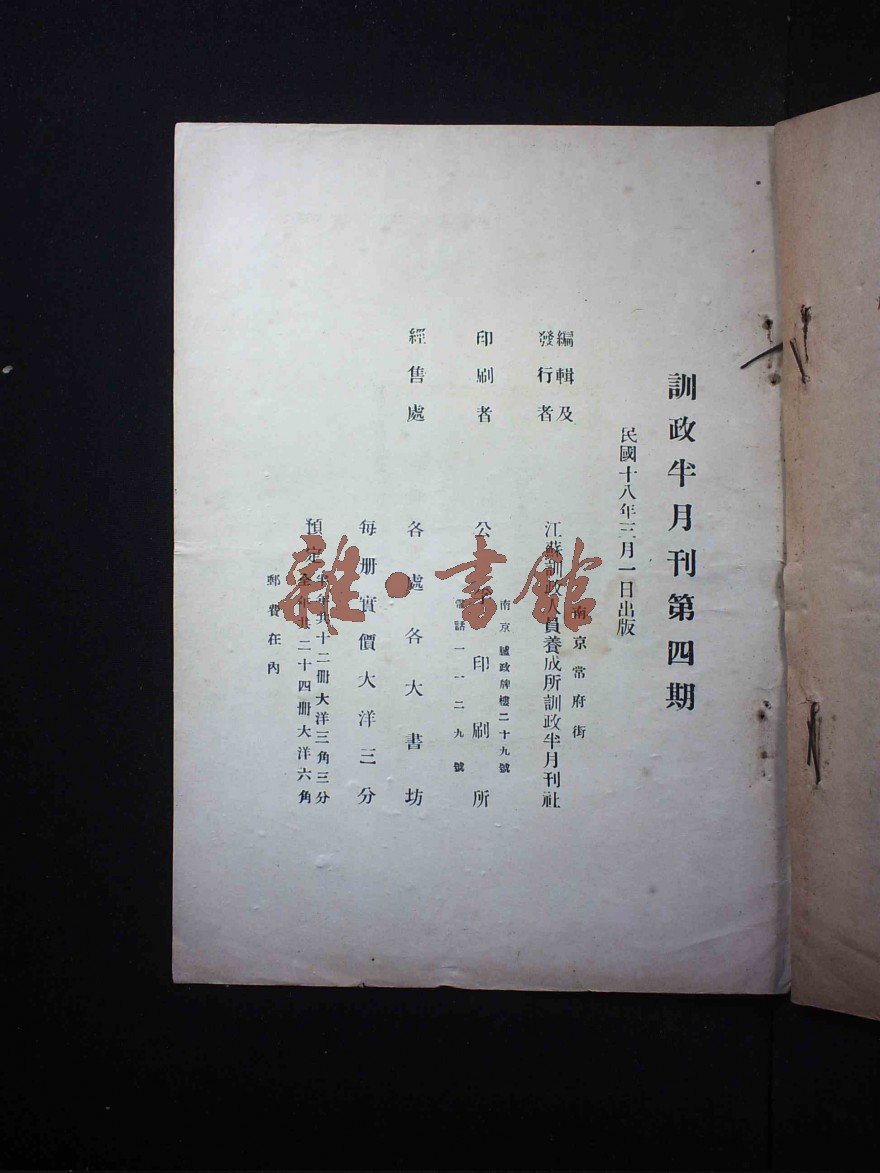 訓政半月刊第四期
民國十八年三月一日出版
編輯及
發行者
南京常府街
江蘇訓政人員養成所訓政半月刊社
印刷者
南京臚政牌樓二十九號
公孚印刷所
電話一一二九號
經售處
各處各大書坊
每册實價大洋三分
預定
半年共十二册大洋三角三分
全年共二十四册大洋六角
郵費在內
雜·書館